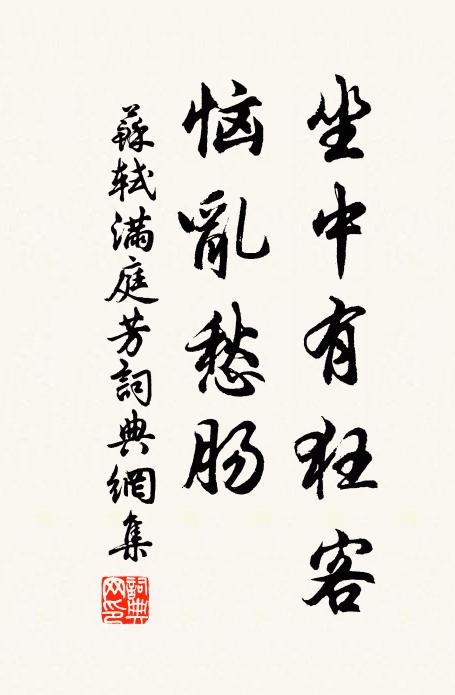 坐中有狂客
恼亂愁肠
蘇軾满庭芳詞典網集
詞典网印